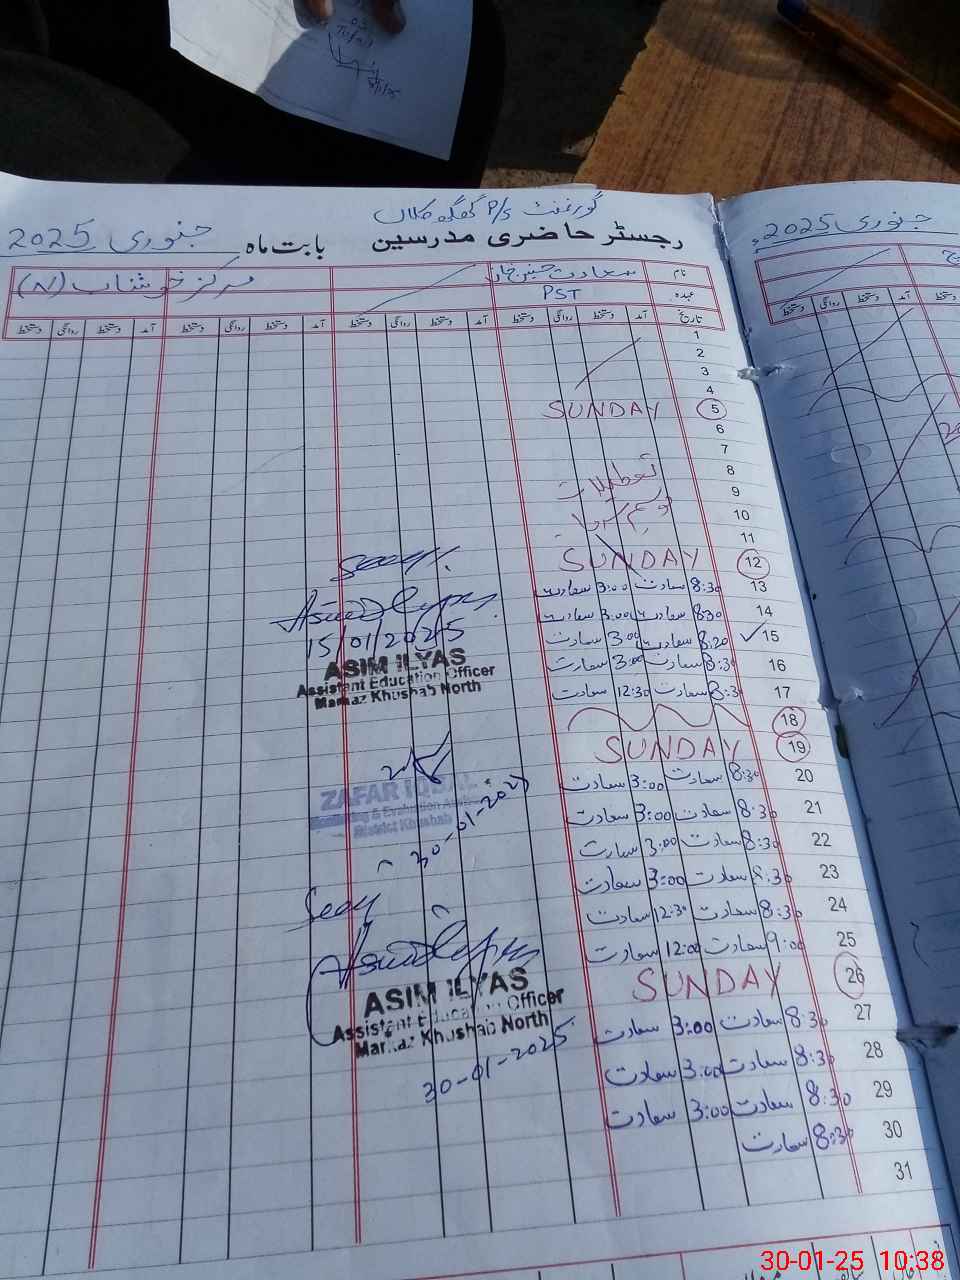 گورنمنٹ P/S گھگہ کلاں
رجسٹر حاضری مدرسین بابت ماہ جنوری 2025
نام سعادت حسین خان مرکز خوشاب (N)
عہدہ PST
تاریخ آمد دستخط روانگی دستخط آمد دستخط روانگی دستخط آمد دستخط روانگی دستخط آمد دستخط روانگی دستخط
1
2
3
4
5 SUNDAY
6
7
8 تعطیلات
9
10 موسم سرما
11
12 SUNDAY
13 8:30 سعادت 3:00 سعادت
14 8:30 سعادت 3:00 سعادت
15 8:20 سعادت 3:00 سعادت
16 8:30 سعادت 3:00 سعادت
17 8:30 سعادت 12:30 سعادت
18
19 SUNDAY
20 8:30 سعادت 3:00 سعادت
21 8:30 سعادت 3:00 سعادت
22 8:30 سعادت 3:00 سعادت
23 8:30 سعادت 3:00 سعادت
24 8:30 سعادت 12:30 سعادت
25 9:00 سعادت 12:00 سعادت
26 SUNDAY
27 8:30 سعادت 3:00 سعادت
28 8:30 سعادت 3:00 سعادت
29 8:30 سعادت 3:00 سعادت
30 8:30 سعادت
31
Seen
15/01/2025
ASIM ILYAS
Assistant Education Officer
Markaz Khushab North
ZAFAR IQBAL
Monitoring & Evaluation
District Khushab
30-01-2025
Seen
ASIM ILYAS
Assistant Education Officer
Markaz Khushab North
30-01-2025
جنوری 2025ء
30-01-25 10:38